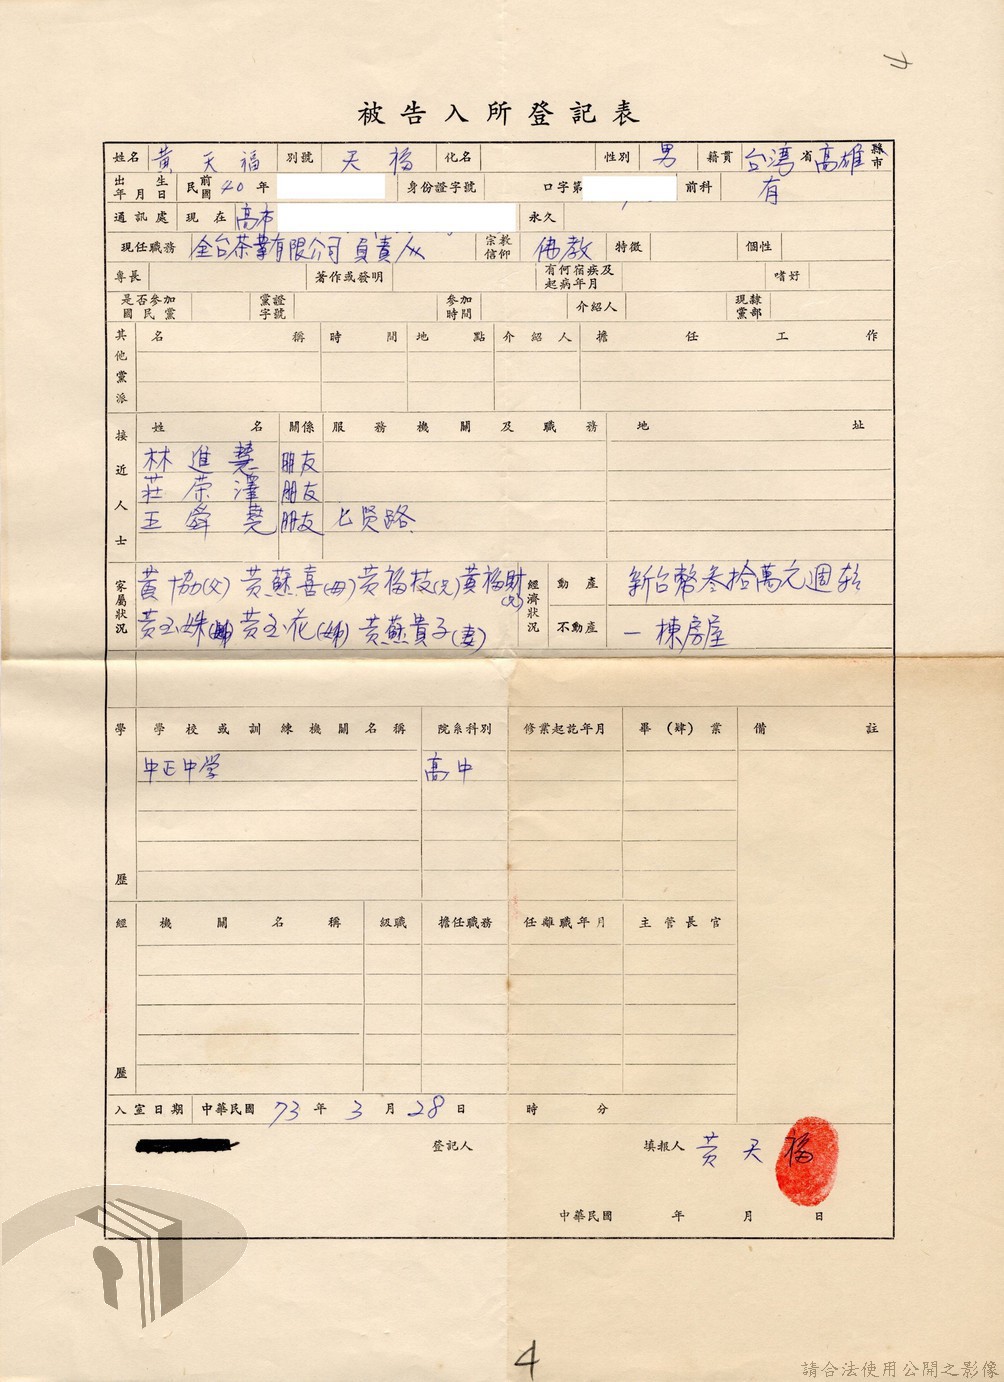 被告入所登記表
姓名 黃天福 別號 天福 化名 性別 男 籍貫 台湾省高雄縣市
出生年月日 民前國 40年 身份證字號 口字第 前科 有
通訊處 現在 高市 永久
現任職務 全台茶業有限公司 負責人 宗教信仰 佛教 特徵 個性
專長 著作或發明 有何宿疾及起病年月 嗜好
是否參加國民黨 黨證字號 參加時間 介紹人 現隸黨部
其他黨派 名稱 時間 地點 介紹人 擔任工作
接近人士 姓名 關係 服務機關及職務 地址
林進慧 朋友
莊荣澤 朋友
王舜慧 朋友 七贤路
家屬狀況 黃協(父) 黃蘇喜(母) 黃福枝(兄) 黃福財(兄) 經濟狀況 動產 新台幣叁拾萬元週轉
黃玉姝 黃玉花(姊) 黃蘇貴子(妻) 不動產 一棟房屋
學歷 學校或訓練機關名稱 院系科別 修業起訖年月 畢(肄)業 備註
中正中学 高中
經歷 機關名稱 級職 擔任職務 任離職年月 主管長官
入室日期 中華民國 73年 3月 28日 時 分
登記人 填報人 黃天福
中華民國 年 月 日
4
請合法使用公開之影像